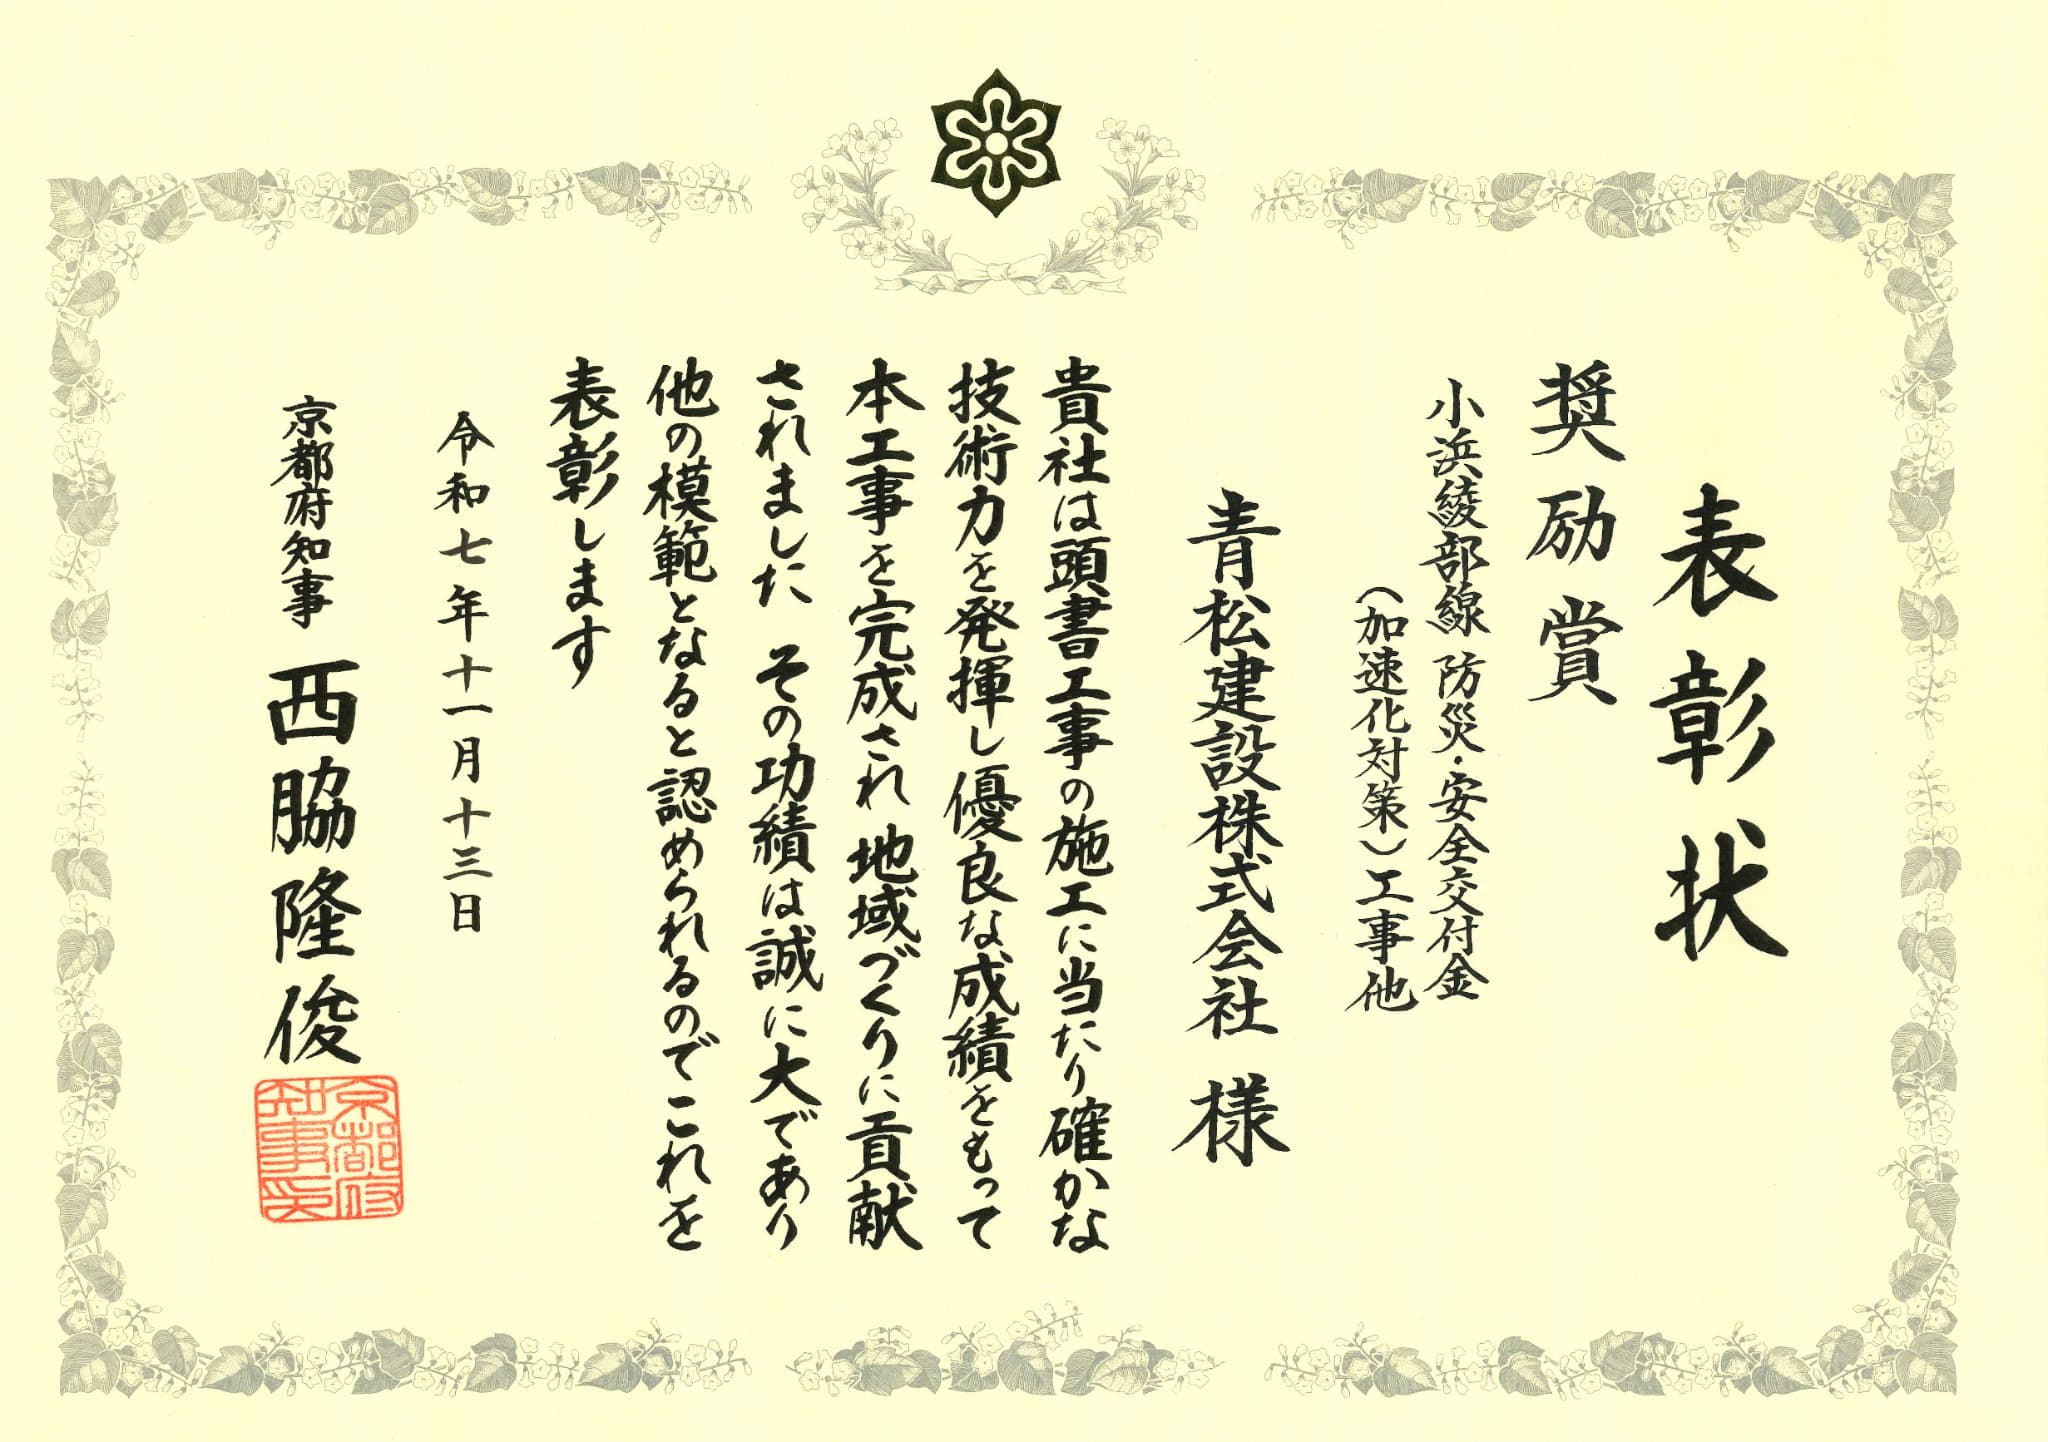 表彰状
奨励賞
小浜綾部線 防災・安全交付金
(加速化対策)工事他
青松建設株式会社 様
貴社は頭書工事の施工に当たり確かな
技術力を発揮し優良な成績をもって
本工事を完成され 地域づくりに貢献
されました その功績は誠に大であり
他の模範となると認められるのでこれを
表彰します
令和七年十一月十三日
京都府知事 西脇隆俊
京都府
知事印